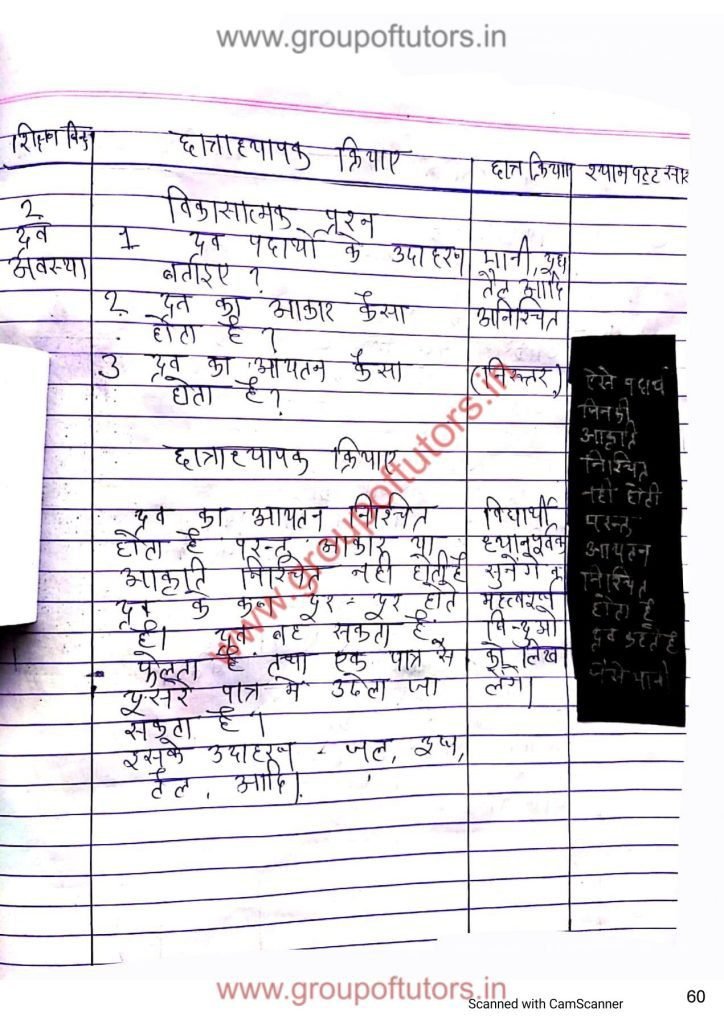 www.groupoftutors.in
शिक्षण बिन्दु
छात्राध्यापक क्रियाए
छात्र क्रियाए
श्यामपट्ट सार
2
द्रव
अवस्था
विकासात्मक प्रश्न
1 द्रव पदार्थो के उदाहरण
बताइए ?
2 द्रव का आकार कैसा
होता है ?
3 द्रव का आयतन कैसा
होता है ?
पानी, दूध
तैल आदि
अनिश्चित
(निरुत्तर)
छात्राध्यापक क्रियाए
द्रव का आयतन निश्चित
होता है परन्तु आकार या
आकृति निश्चित नही होती है
द्रव के कण दूर-दूर होते
है। द्रव बह सकता है,
फैलता है तथा एक पात्र से
दूसरे पात्र मे उदेला जा
सकता है।
इसके उदाहरण - जल, दूध,
तैल, आदि।
विद्यार्थी
ध्यानपूर्वक
सुनेगे व
महत्वपूर्ण
बिन्दुओ
को लिख
लेंगे।
ऐसे पदार्थ
जिनकी
आकृति
निश्चित
नही होती
परन्तु
आयतन
निश्चित
होता है
द्रव कहते है
जैसे पानी
www.groupoftutors.in
www.groupoftutors.in
Scanned with CamScanner
60